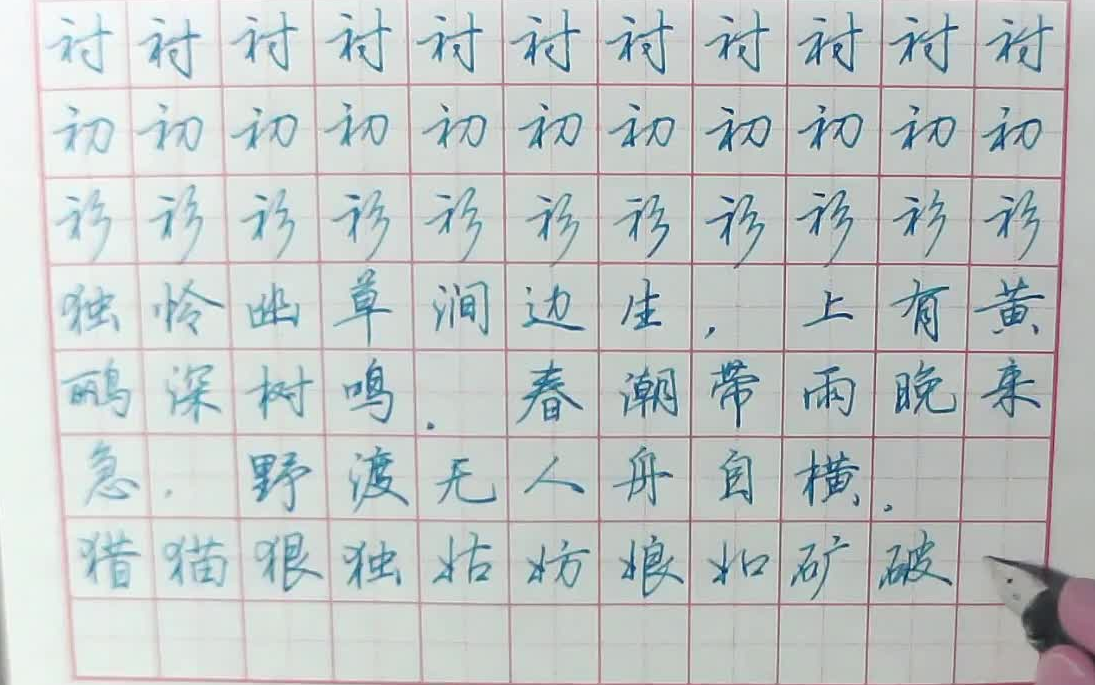 衬衬衬衬衬衬衬衬衬衬衬
初初初初初初初初初初初
衫衫衫衫衫衫衫衫衫衫衫
独怜幽草涧边生，上有黄
鹂深树鸣。春潮带雨晚来
急，野渡无人舟自横。
猎猫狠独姑妨娘如矿破